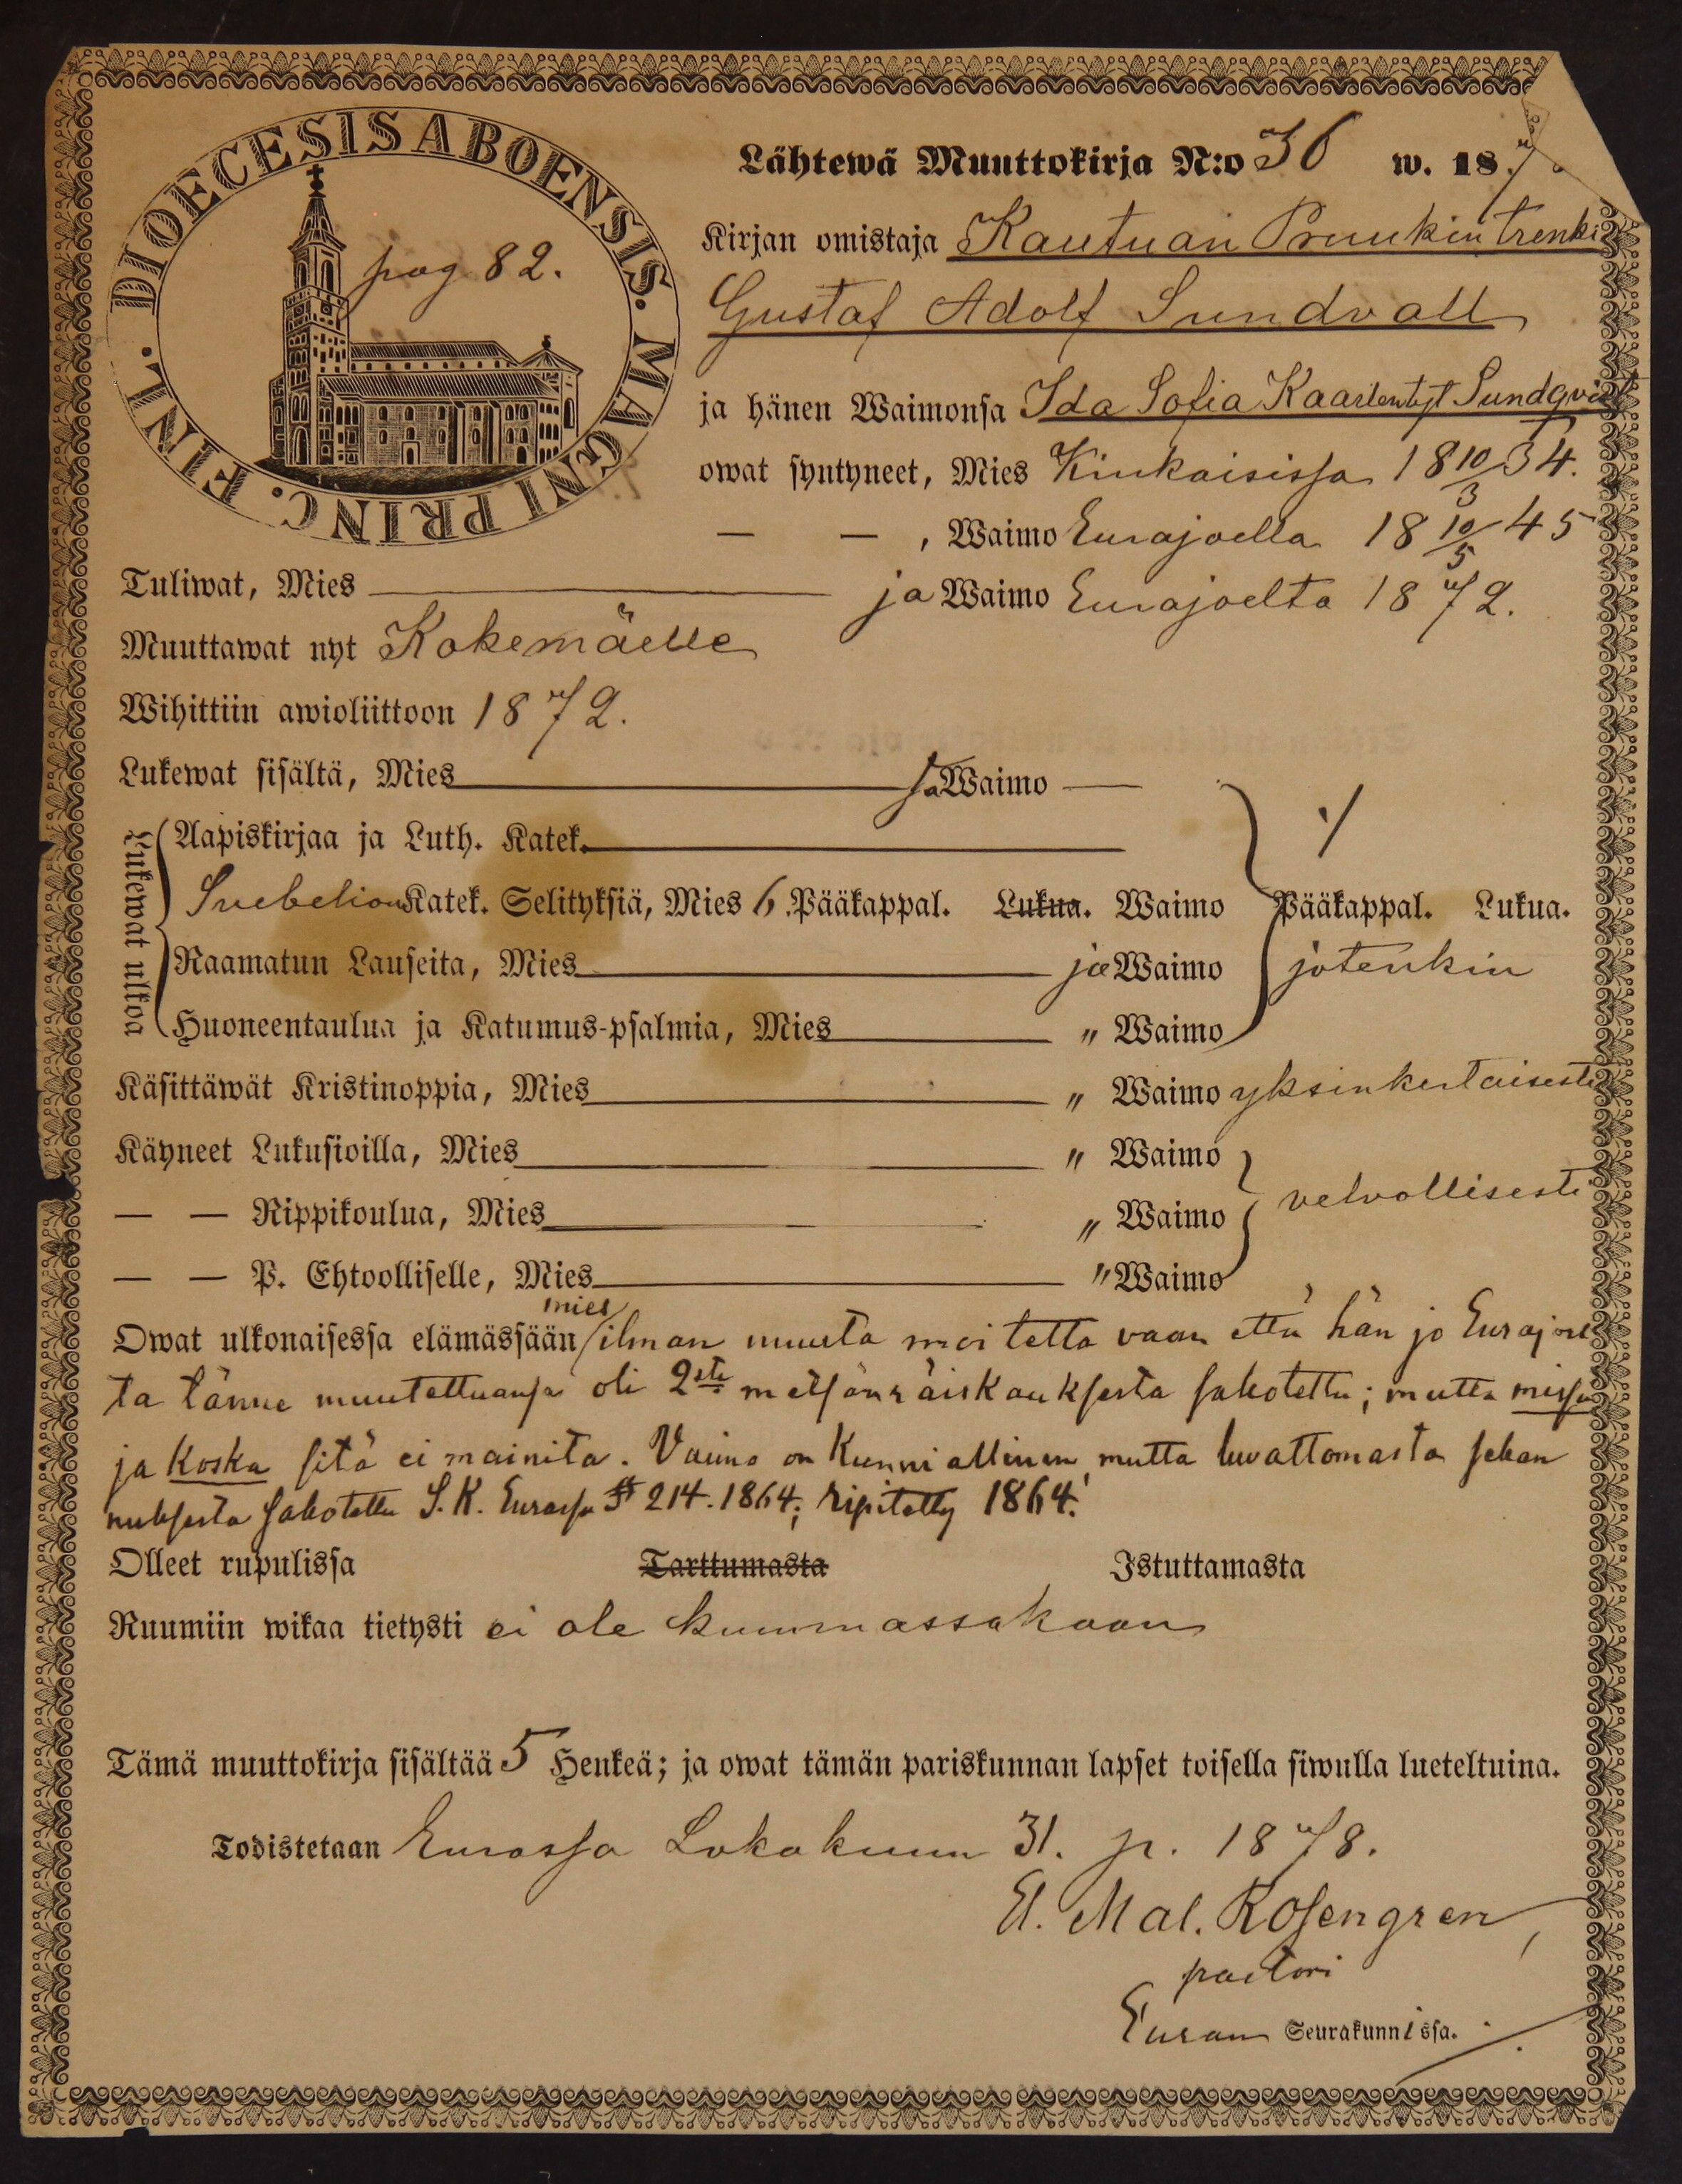 DIOECESIS ABOENSIS. MAGNI PRINC. FINL.
pag 82.
Lähtewä Muuttokirja N:o 36 w. 187
Kirjan omistaja Kautuan Pruukin trenki
Gustaf Adolf Sundvall
ja hänen Waimonsa Ida Sofia Kaarlentyt Sundqvist
owat syntyneet, Mies Kiukaisissa 18 10/3 34.
— — , Waimo Eurajoella 18 10/5 45
Tuliwat, Mies ja Waimo Eurajoelta 1872.
Muuttawat nyt Kokemäelle
Wihittiin awioliittoon 1872.
Lukewat sisältä, Mies ja Waimo —
Lukewat ulkoa
Aapiskirjaa ja Luth. Katek.
Svebelion Katek. Selityksiä, Mies 6 Pääkappal. Lukua. Waimo Pääkappal. Lukua.
Raamatun Lauseita, Mies ja Waimo jotenkin
Huoneentaulua ja Katumus-psalmia, Mies " Waimo
Käsittäwät Kristinoppia, Mies " Waimo yksinkertaisesti
Käyneet Lukusioilla, Mies " Waimo
— — Rippikoulua, Mies " Waimo velvollisesti
— — P. Ehtoolliselle, Mies " Waimo
Owat ulkonaisessa elämässään mies ilman muuta moitetta vaan että hän jo Eurajoel
ta tänne muutettuansa oli 2sta metsänräiskauksesta sakotettu; mutta missä
ja koska sitä ei mainita. Vaimo on kunniallinen mutta luvattomasta sekan
nuksesta sakotettu S. K. Eurassa § 214. 1864; ripitetty 1864.
Olleet rupulissa Tarttumasta Istuttamasta
Ruumiin wikaa tietysti ei ole kummassakaan
Tämä muuttokirja sisältää 5 Henkeä; ja owat tämän pariskunnan lapset toisella siwulla lueteltuina.
Todistetaan Eurassa Lokakuun 31. p. 1878.
El. Mal. Rosengren
pastori
Euran Seurakunnissa.